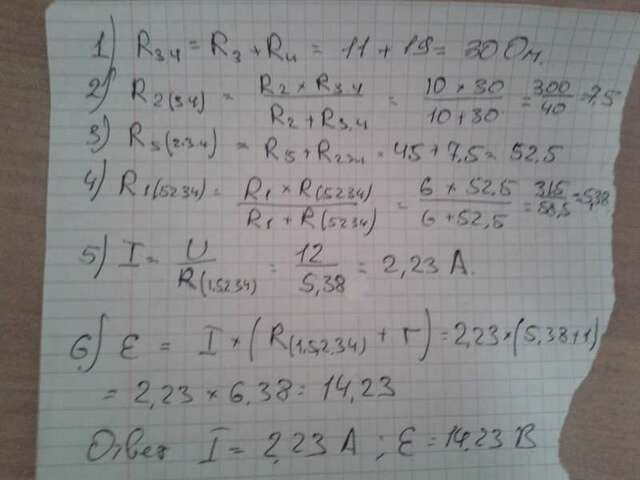 1) R34 = R3 + R4 = 11 + 19 = 30 Ом.
2) R2(34) = R2 × R34 / R2 + R3,4 = 10 × 30 / 10 + 30 = 300 / 40 = 7,5
3) R5(2,3,4) = R5 + R234 = 45 + 7,5 = 52,5
4) R1(5234) = R1 × R(5234) / R1 + R(5234) = 6 × 52,5 / 6 + 52,5 = 315 / 58,5 = 5,38
5) I = U / R(1,5234) = 12 / 5,38 = 2,23 А.
6) ε = I × (R(1,5,2,34) + r) = 2,23 × (5,38 + 1)
= 2,23 × 6,38 = 14,23
Ответ I = 2,23 А ; ε = 14,23 В